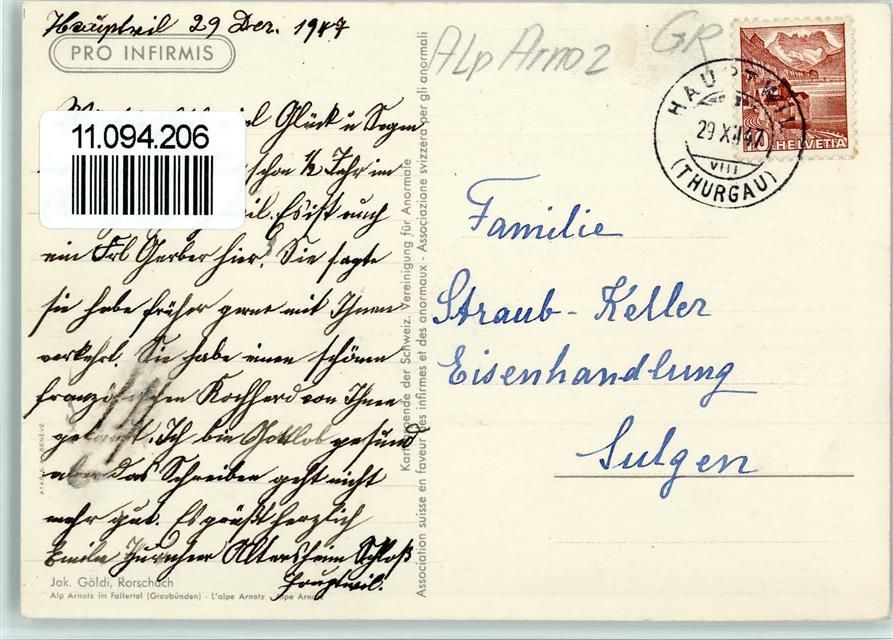 Hauptwil 29 Dez. 1947
PRO INFIRMIS
viel Glück u Segen
11.094.206
schon ½ Jahr im
Es ist auch
ein Frl Gerber hier. Sie sagte
sie habe früher gerne mit Ihnen
verkehrt. Sie habe einen schönen
französischen Kochherd von Ihnen
gekauft. Ich bin Gottlob gesund
aber das Schreiben geht nicht
mehr gut. Es grüßt herzlich
Altersheim Schloß
Hauptwil.
Jak. Göldi, Rorschach
Alp Arnotz im Fallertal (Graubünden) - L'alpe Arnotz - Alpe Arnotz
Kartenspende der Schweiz. Vereinigung für Anormale
Association suisse en faveur des infirmes et des anormaux - Associazione svizzera per gli anormali
Alp Arnoz
GR
HAUPTWIL
29 XII 47
VIII
(THURGAU)
10 HELVETIA
Familie
Straub-Keller
Eisenhandlung
Sulgen